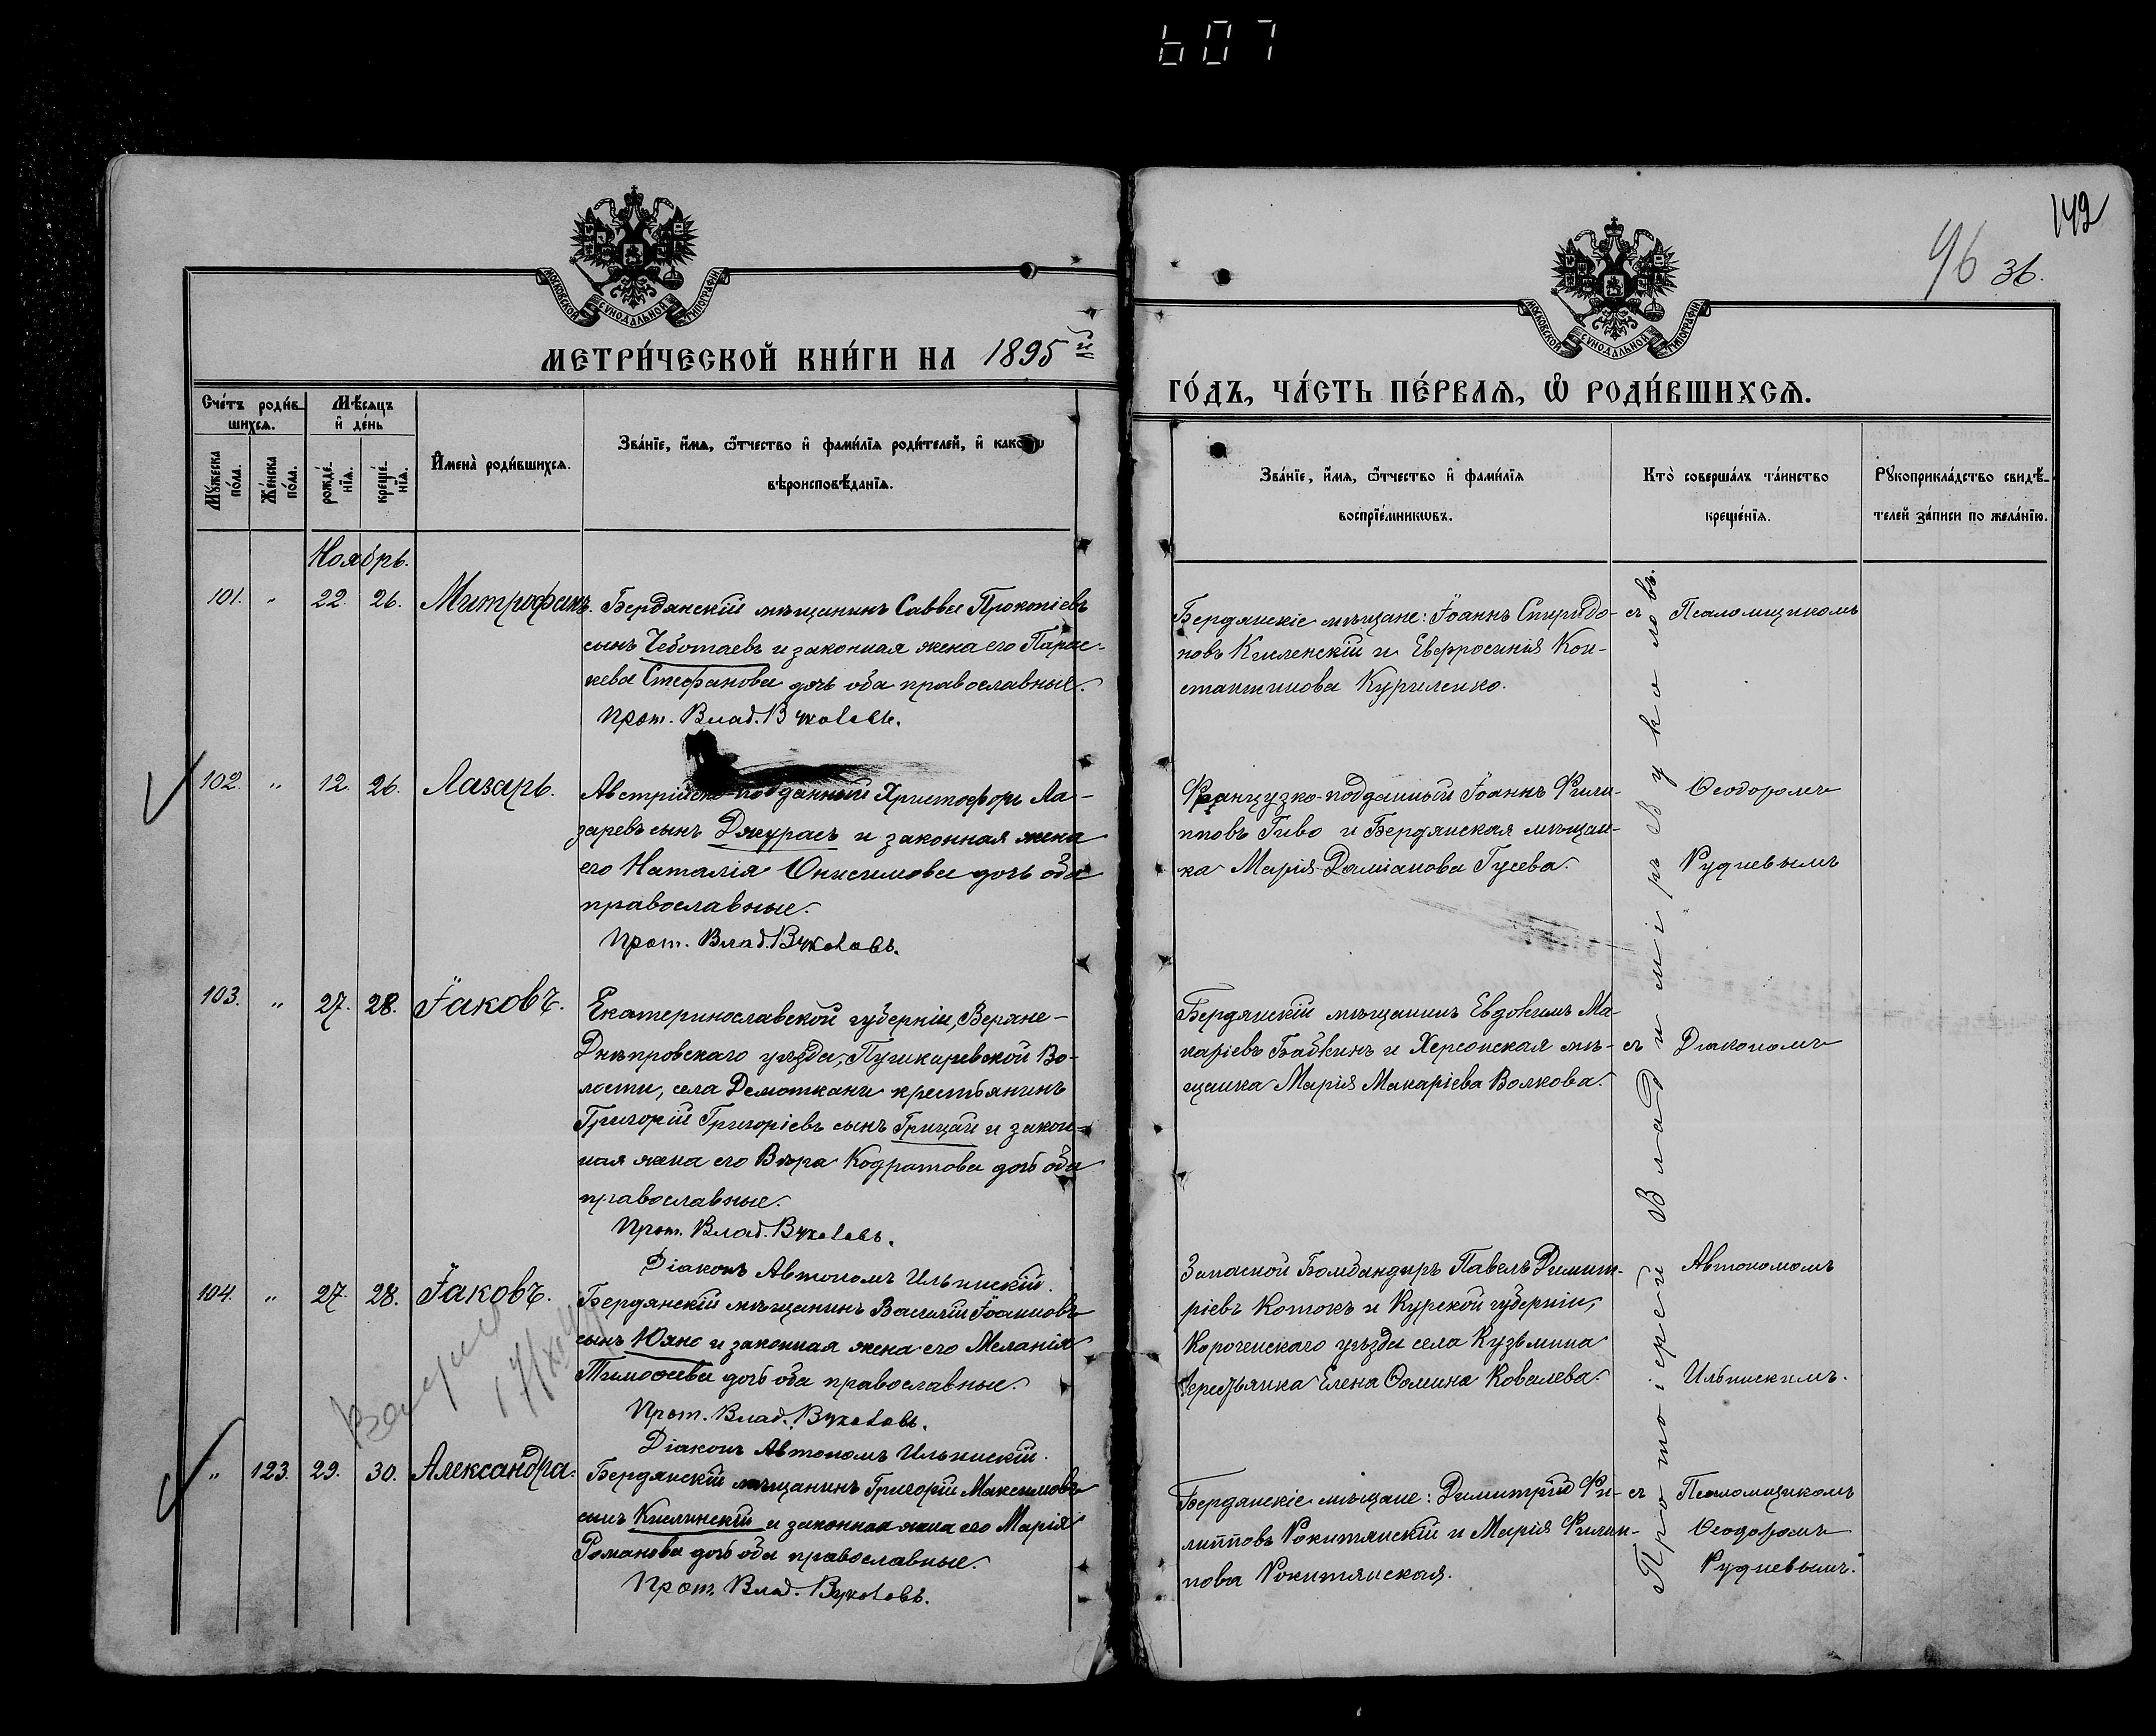 607
142
96 36.
МОСКОВСКОЙ СУНОДАЛЬНОЙ ТИПОГРАФІИ
МОСКОВСКОЙ СУНОДАЛЬНОЙ ТИПОГРАФІИ
МЕТРИ́ЧЕСКОЙ КНИ́ГИ НА 1895й
ГО́ДЪ, ЧА́СТЬ ПЕ́РВАѦ, Ѽ РОДИ́ВШИХСѦ.
Сче́тъ роди́в-
шихсѧ.
Мꙋ́жеска по́ла.
Же́нска по́ла.
Мѣ́сѧцъ
и҆ де́нь
рожде́-нїѧ.
креще́-нїѧ.
И҆мена̀ роди́вшихсѧ.
Зва́нїе, и҆́мѧ, ѻ҆́тчество и҆ фами́лїѧ роди́телей, и҆ како́гѡ
вѣроисповѣ́данїѧ.
Зва́нїе, и҆́мѧ, ѻ҆́тчество и҆ фами́лїѧ
воспрїе́мникѡвъ.
Кто̀ соверша́лъ та́инство
креще́нїѧ.
Рꙋкоприкла́дство свидѣ́-
телей за́писи по жела́нїю.
Ноябрь.
101. „ 22. 26. Митрофанъ.
Бердянскій мѣщанинъ Савва Прокопіевъ
сынъ Чеботаевъ и законная жена его Парас-
кева Стефанова дочь оба православные.
Прот. Влад. Вуколовъ.
Бердянскіе мѣщане: Іоаннъ Спиридо-
новъ Кисленскій и Евфросинія Кон-
стантинова Куриленко.
съ Псаломщикомъ
102. „ 12. 26. Лазарь.
Австрійско-подданный Христофоръ Ла-
заревъ сынъ Джурасъ и законная жена
его Наталія Онисимова дочь оба
православные.
Прот. Влад. Вуколовъ.
Французко-подданный Іоаннъ Фили-
пповъ Гиво и Бердянская мѣщан-
ка Марія Даміанова Гусева.
Ѳеодоромъ
Рудневымъ
103. „ 27. 28. Іаковъ.
Екатеринославской губерніи, Верхне-
Днѣпровскаго уѣзда, Пушкаревской Во-
лости, села Демоткани крестьянинъ
Григорій Григоріевъ сынъ Грицай и закон-
ная жена его Вѣра Кодратова дочь оба
православные.
Прот. Влад. Вуколовъ.
Діаконъ Автономъ Ильинскій.
Бердянскій мѣщанинъ Евдокимъ Ма-
каріевъ Бабкинъ и Херсонская мѣ-
щанка Марія Макаріева Волкова.
съ Діакономъ
104. „ 27. 28. Іаковъ.
Бердянскій мѣщанинъ Василій Іоанновъ
сынъ Юхно и законная жена его Меланія
Тимоѳеева дочь оба православные.
Прот. Влад. Вуколовъ.
Діаконъ Автономъ Ильинскій.
Запасной Бомбандиръ Павелъ Димит-
ріевъ Котокъ и Курской губерніи,
Короченскаго уѣзда села Кузьмина
крестьянка Елена Ѳомина Ковалева.
Автономомъ
Ильинскимъ.
„ 123. 29. 30. Александра.
Бердянскій мѣщанинъ Григорій Максимовъ
сынъ Кислинскій и законная жена его Марія
Романова дочь оба православные.
Прот. Влад. Вуколовъ.
Бердянскіе мѣщане: Димитрій Фи-
липповъ Рокитянскій и Марія Филип-
пова Рокитянская.
съ Псаломщикомъ
Ѳеодоромъ
Рудневымъ.
Протоіерей Владиміръ Вуколовъ.